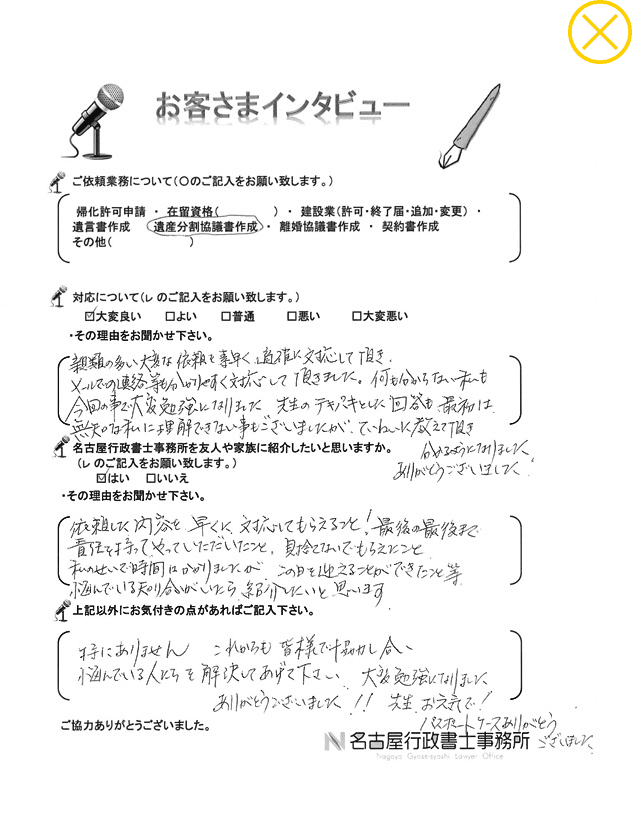 お客さまインタビュー
ご依頼業務について(○のご記入をお願い致します。)
帰化許可申請 ・ 在留資格(　　　　) ・ 建設業(許可・終了届・追加・変更) ・
遺言書作成 遺産分割協議書作成 ・ 離婚協議書作成 ・ 契約書作成
その他(　　　　　　)
対応について(レ のご記入をお願い致します。)
☑大変良い □よい □普通 □悪い □大変悪い
・その理由をお聞かせ下さい。
親類の多い大変な依頼を素早く適確に対応して頂き、
メールでの連絡等も分かりやすく対応して頂きました。何も分からない私も
今回の事で大変勉強になりました 先生のテキパキとした回答も最初は
無知な私に理解できない事もございましたが、ていねいに教えて頂き
分かるようになりました
ありがとうございました
名古屋行政書士事務所を友人や家族に紹介したいと思いますか。
(レ のご記入をお願い致します。)
☑はい □いいえ
・その理由をお聞かせ下さい。
依頼した内容を早くに対応してもらえること!最後の最後まで
責任を持ってやっていただいたこと、見捨てないでもらえたこと
私のせいで時間はかかりましたが この日を迎えることができたこと等
悩んでいる知り合いがいたら紹介したいと思います
上記以外にお気付きの点があればご記入下さい。
特にありません これからも皆様で協力し合い
悩んでいる人たちを解決してあげて下さい 大変勉強になりました
ありがとうございました!! 先生お元気で!
パスポートケースありがとう
ございました
ご協力ありがとうございました。
名古屋行政書士事務所
Nagoya Gyosei-syoshi Lawyer Office